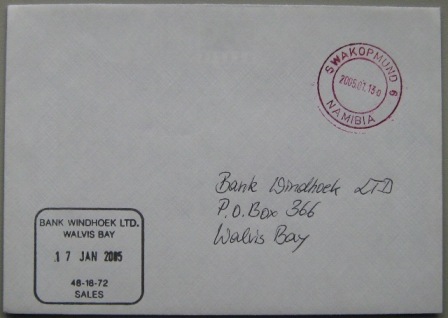 SWAKOPMUND 6
2005.01.13-0
NAMIBIA
Bank Windhoek LTD
P.O.Box 366
Walvis Bay
BANK WINDHOEK LTD.
WALVIS BAY
17 JAN 2005
48-16-72
SALES